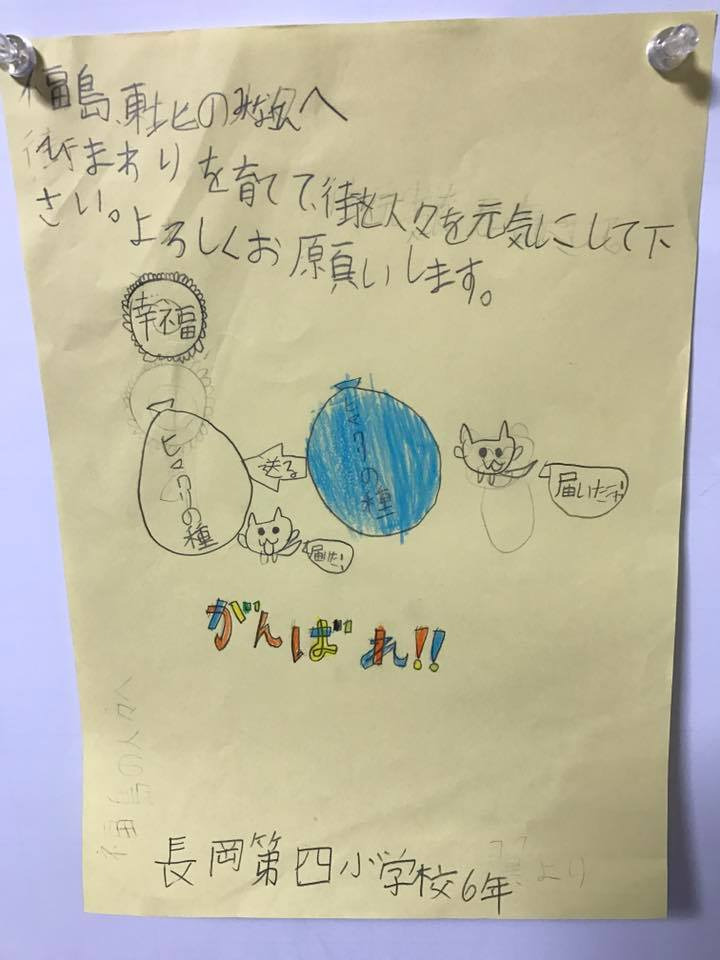 福島、東北のみなさんへ
ひまわりを育てて、街と人々を元気にして下
さい。よろしくお願いします。
幸福
ヒマワリの種
送る
ヒマワリの種
届いた
がんばれ!!
福島の人々へ
長岡第四小学校6年
より